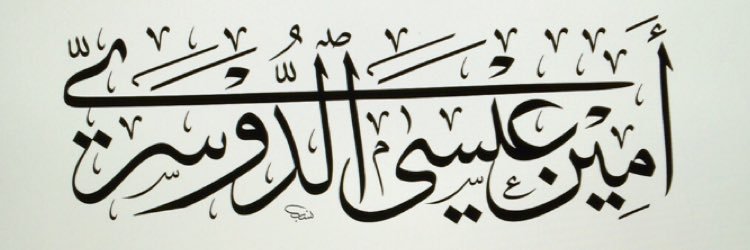 أمين عيسى الدوسري